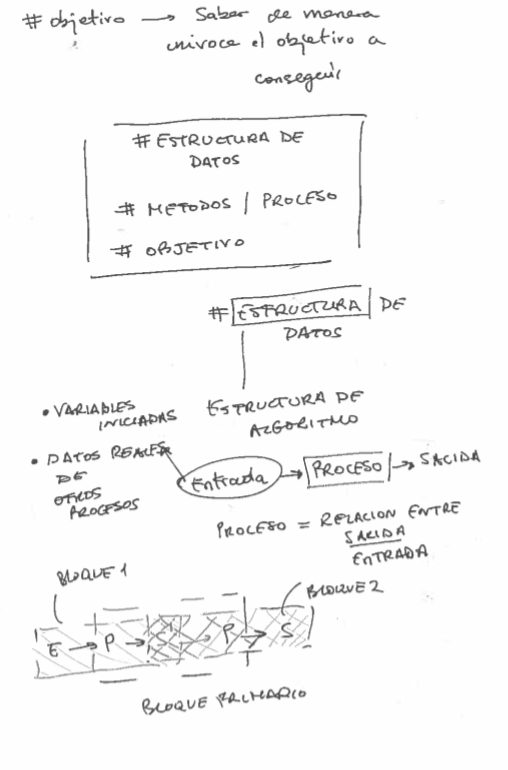 # objetivo → Saber de manera
univoca el objetivo a
conseguir
# ESTRUCTURA DE
DATOS
# METODOS / PROCESO
# OBJETIVO
# ESTRUCTURA DE
DATOS
ESTRUCTURA DE
ALGORITMO
• VARIABLES
INICIADAS
• DATOS REALES
DE
OTROS
PROCESOS
Entrada → PROCESO → SALIDA
PROCESO = RELACION ENTRE
SALIDA
ENTRADA
BLOQUE 1
BLOQUE 2
E → P → S → P → S
BLOQUE PRIMARIO